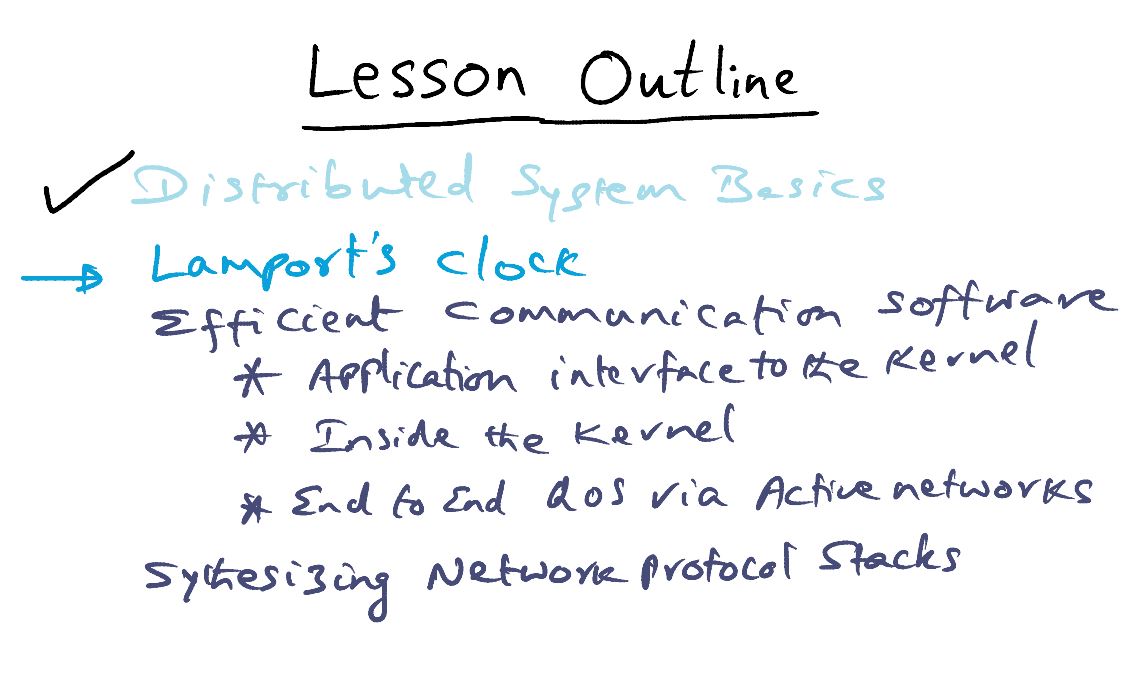 Lesson Outline
Distributed System Basics
Lamport's clock
Efficient Communication software
* Application interface to the Kernel
* Inside the Kernel
* End to End QoS via Active networks
Sythesizing Network Protocol Stacks